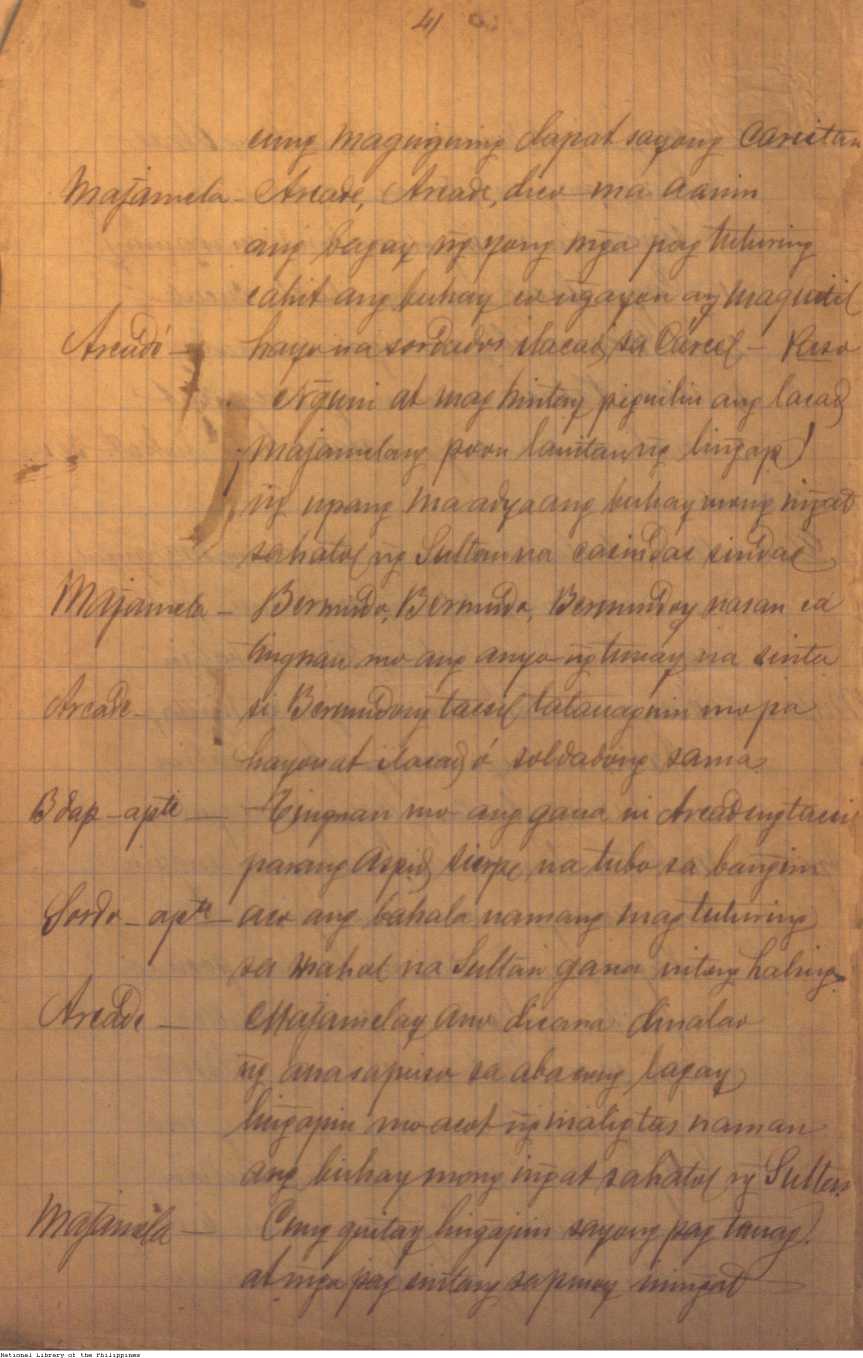 41
cung maguiguing dapat sayong Cariitan
Majamela - Arcade, Arcade, dico ma aanin
ang bagay ng yong mga pag tuturing
cahit ang buhay co ngayon ay maquitil
Arcade - hayo na sordados ilacad sa Carcel -
Nguni at mag hintay piguilin ang lacad
Majamelang poon lauitan ng lingap
ng upang maadya ang buhay mong ingat
sahatol ng Sultan na casindac sindac
Majamela - Bermudo, Bermudo, Bermudoy nasan ca
tingnan mo ang anyo ng tunay na sinta
Arcade - si Bermudong tacsil tatauaguin mo pa
hayo at ilacad ó soldadong sama
Bdap - apte - Tingnan mo ang gaua ni Arcadeng tacsil
parang Aspid, sierpe, na tubo sa bangin
Sordo - apte - aco ang bahala namang mag tuturing
sa mahal na Sultan gaua nitong haling
Arcade - Majamelay ano dicana dinalao
ng aua sapuso sa aba cong lagay
lingapin mo acot ng maligtas naman
ang buhay mong ingat sahatol ng Sultan
Majamela - Cung quitay lingapin sayong pag tauag
at mga pag sintang sapusoy iningat
National Library of the Philippines